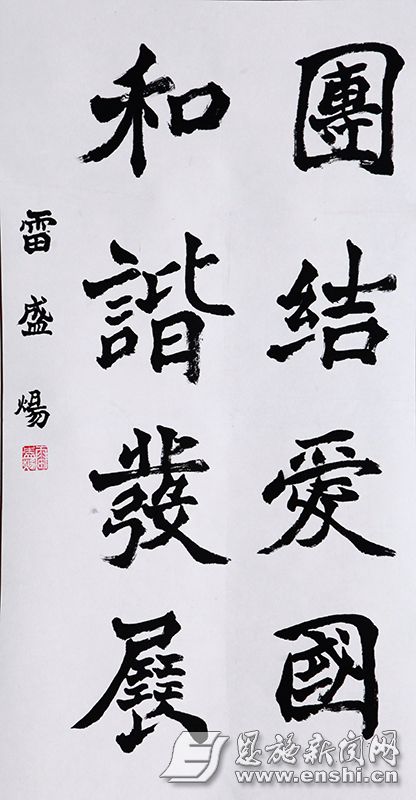 團結愛國
和諧發展
雷盛煬
恩施新闻网
www.enshi.cn